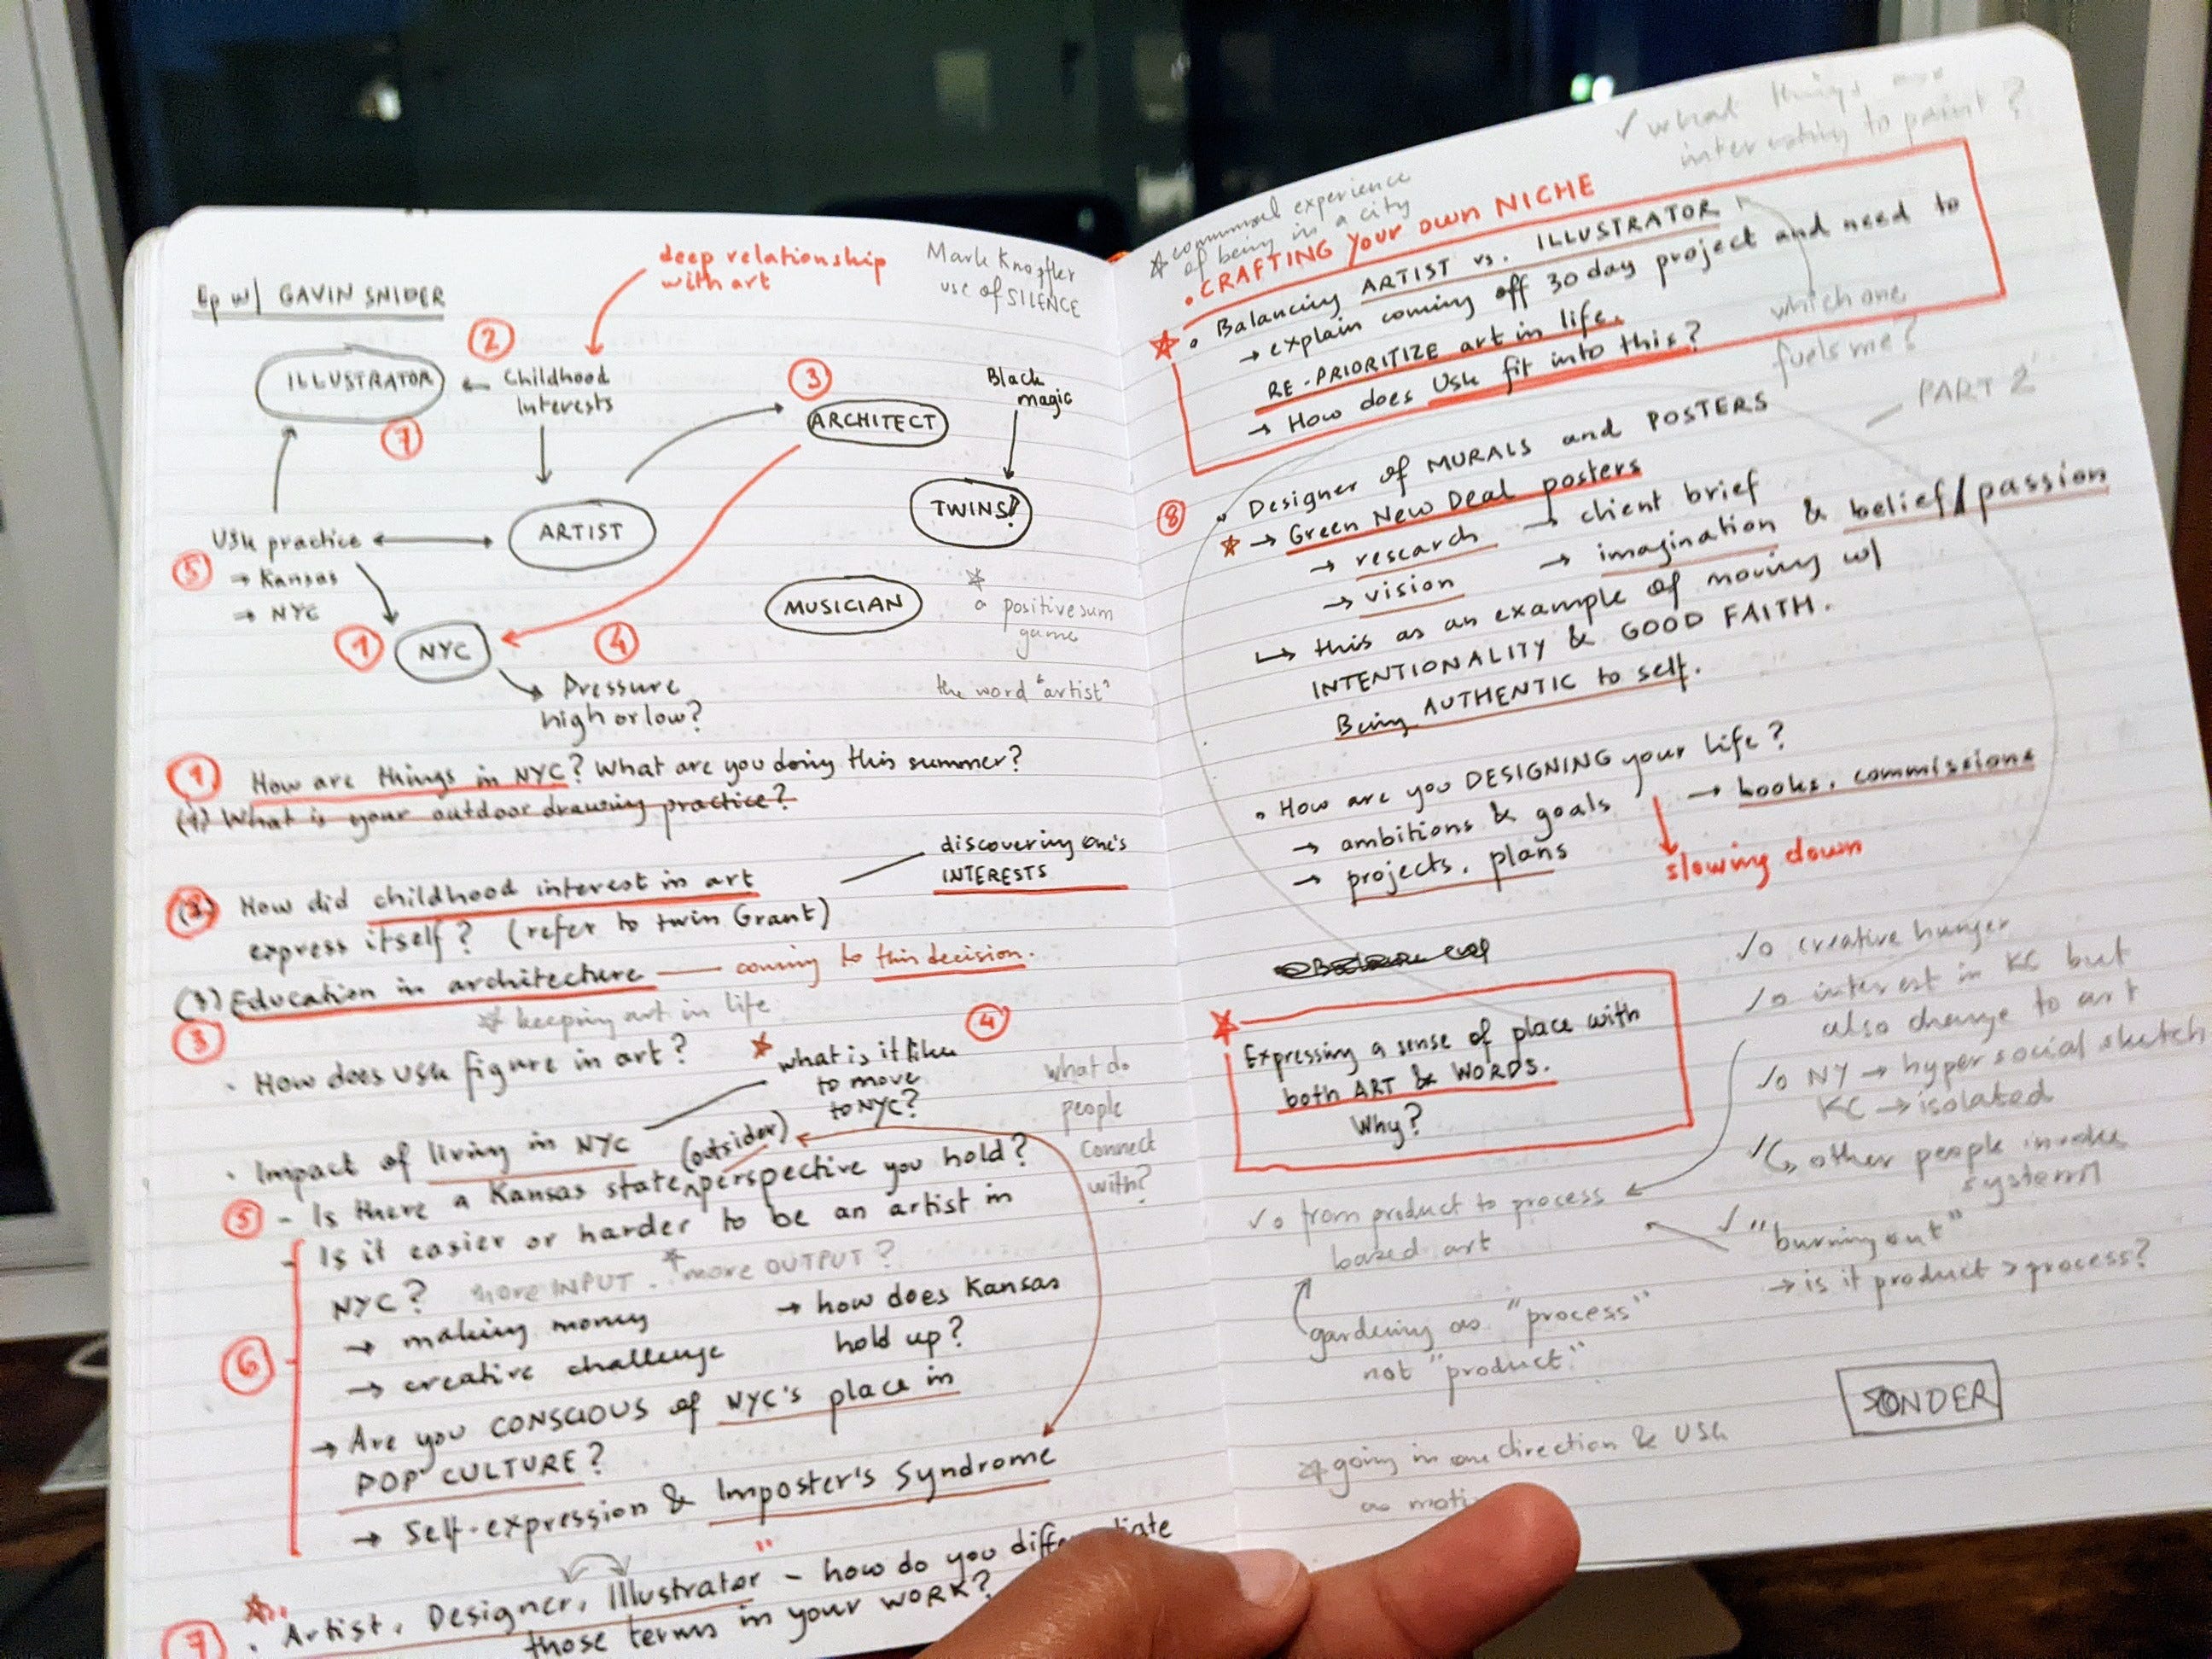 Ep w/ GAVIN SNIDER
deep relationship
with art
Mark Knopfler
use of SILENCE
ILLUSTRATOR
2
Childhood
Interests
7
3
ARCHITECT
Black
magic
TWINS!
ARTIST
USk practice
5
→ Kansas
→ NYC
MUSICIAN
a positive sum
game
1
NYC
4
Pressure
high or low?
the word "artist"
1 How are things in NYC? What are you doing this summer?
(1) What is your outdoor drawing practice?
discovering one's
INTERESTS
(2) How did childhood interest in art
express itself? (refer to twin Grant)
(3) Education in architecture — coming to this decision.
keeping art in life
3
• How does USk figure in art?
4
what is it like
to move
to NYC?
what do
people
connect
with?
• Impact of living in NYC
(outsider)
5 - Is there a Kansas state perspective you hold?
- Is it easier or harder to be an artist in
NYC? more INPUT. more OUTPUT?
→ making money
→ how does Kansas
hold up?
6
→ creative challenge
→ Are you CONSCIOUS of NYC's place in
POP CULTURE?
→ Self-expression & Imposter's Syndrome
7 • Artist, Designer, Illustrator" - how do you differentiate
those terms in your WORK?
✓ what things are
interesting to paint?
communal experience
of being in a city
• CRAFTING your own NICHE
• Balancing ARTIST vs. ILLUSTRATOR
→ explain coming off 30 day project and need to
RE-PRIORITIZE art in life.
→ How does USk fit into this?
which one
fuels me?
PART 2
8
• Designer of MURALS and POSTERS
→ Green New Deal posters
→ research → client brief
→ vision → imagination & belief/passion
↳ this as an example of moving w/
INTENTIONALITY & GOOD FAITH.
Being AUTHENTIC to self.
• How are you DESIGNING your life?
→ ambitions & goals → books, commissions
→ projects, plans
slowing down
Expressing a sense of place with
both ART & WORDS.
Why?
✓o creative hunger
✓o interest in KC but
also change to art
✓o NY → hyper social sketch
KC → isolated
✓↳ other people invoke
system
✓o from product to process
based art
✓ "burning out"
→ is it product > process?
gardening as "process"
not "product"
SONDER
going in one direction & USk
as